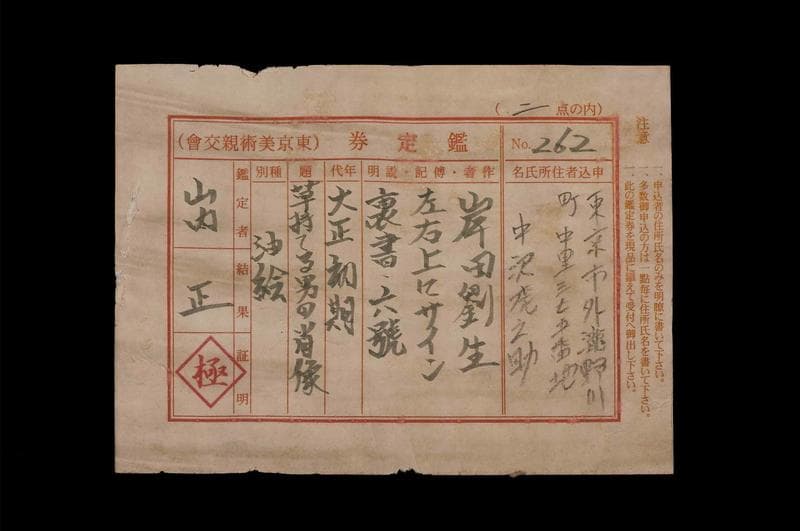 注意
一、申込者の住所氏名のみを明瞭に書いて下さい。
一、多数御申込の方は一點毎に住所氏名を書いて下さい。
一、此の鑑定券を現品に添えて受付へ御出し下さい。
(二点の内)
鑑定券
(東京美術親交會)
No.262
申込者住所氏名
東京市外瀧野川
町中里三七五番地
中沢虎之助
作者・傳記・説明
岸田劉生
左右上にサイン
裏書・六號
年代
大正初期
題
草持てる男の肖像
種別
油絵
鑑定者結果証明
山内正
極